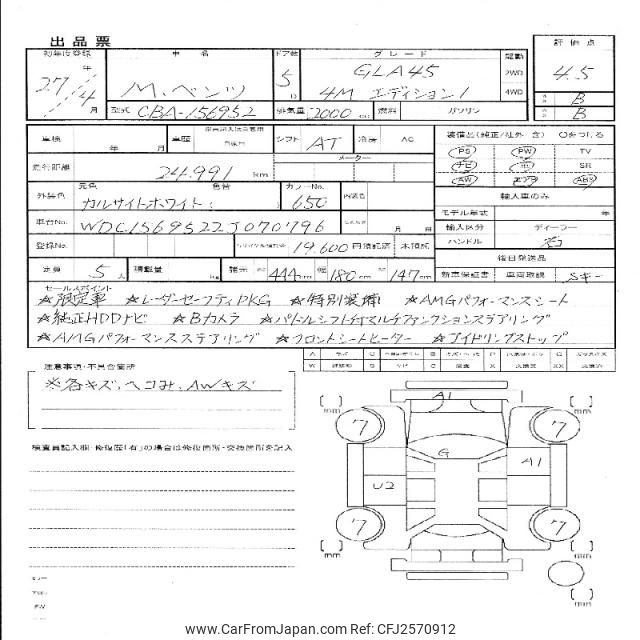 出品票
初年度登録 車名 ドア数 グレード 駆動 評価点
27年/4月 M.ベンツ 5D GLA45 2WD 4.5
4M エディション1 4WD
型式 CBA-156952 排気量 2000cc 燃料 ガソリン B
B
車検 年 月 車歴 自家用 シフト AT 冷房 AC 装備品(純正/社外 含) ○をつける
PS PW TV
走行距離 24.991 km メーター SR
AW エアB ABS
外装色 元色 カルサイトホワイト 色替 カラーNo. 650 内装色 輸入車のみ
モデル年式 年
車台No. WDC1569522J070796 月 日 輸入区分 ディーラー
登録No. リサイクル預託金 19,600 円 預託済 未預託 ハンドル 右
後日発送品
定員 5人 積載量 kg 諸元 長 444cm 幅 180cm 高 147cm 新車保証書 車両取説 Sキー
セールスポイント
☆限定車 ☆レーダーセーフティPKG ☆特別装備 ☆AMGパフォーマンスシート
☆純正HDDナビ ☆Bカメラ ☆パドルシフト付マルチファンクションステアリング
☆AMGパフォーマンスステアリング ☆フロントシートヒーター ☆アイドリングストップ
注意事項・不具合箇所
※各キズ、ヘコミ、AWキズ
検査員記入欄・修復歴「有」の場合は修復箇所・交換箇所を記入
[ ]mm A1 [ ]mm
7 7
G
U2 A1
7 7
[ ]mm [ ]mm
[ ]mm
www.CarFromJapan.com Ref: CFJ2570912